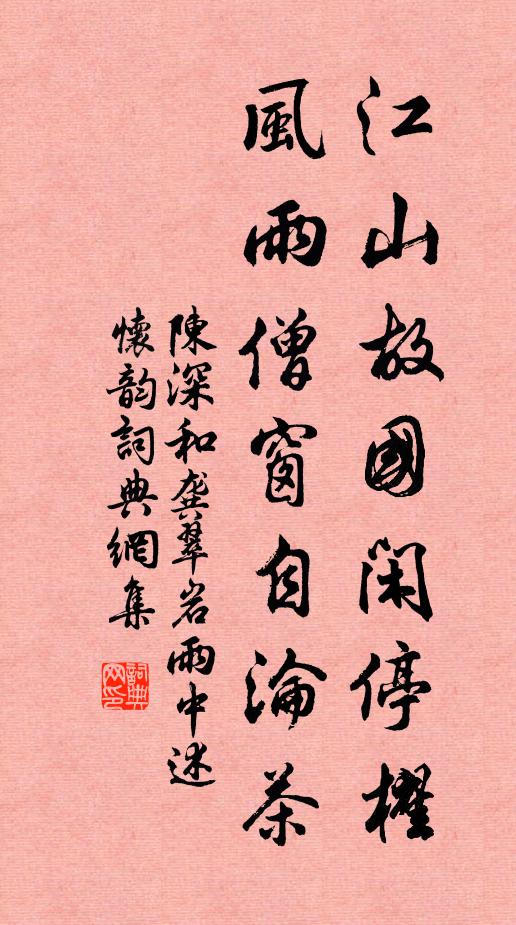 江山故國閑停櫂
風雨僧窗自淪茶
陳深和龔翠岩雨中述
懷韵詞典網集
詞典网印